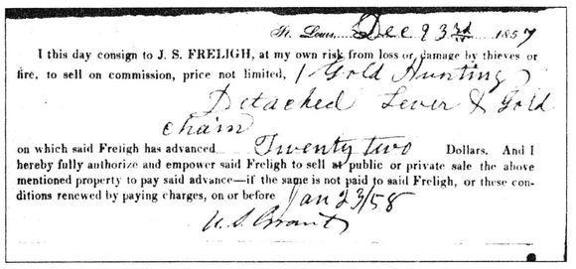 St. Louis, Dec 23rd 1857
I this day consign to J. S. FRELIGH, at my own risk from loss or damage by thieves or
fire, to sell on commission, price not limited, 1 Gold Hunting
Detached Lever & Gold
chain
on which said Freligh has advanced Twenty two Dollars. And I
hereby fully authorize and empower said Freligh to sell at public or private sale the above
mentioned property to pay said advance—if the same is not paid to said Freligh, or these con-
ditions renewed by paying charges, on or before Jan 23/58
U.S. Grant